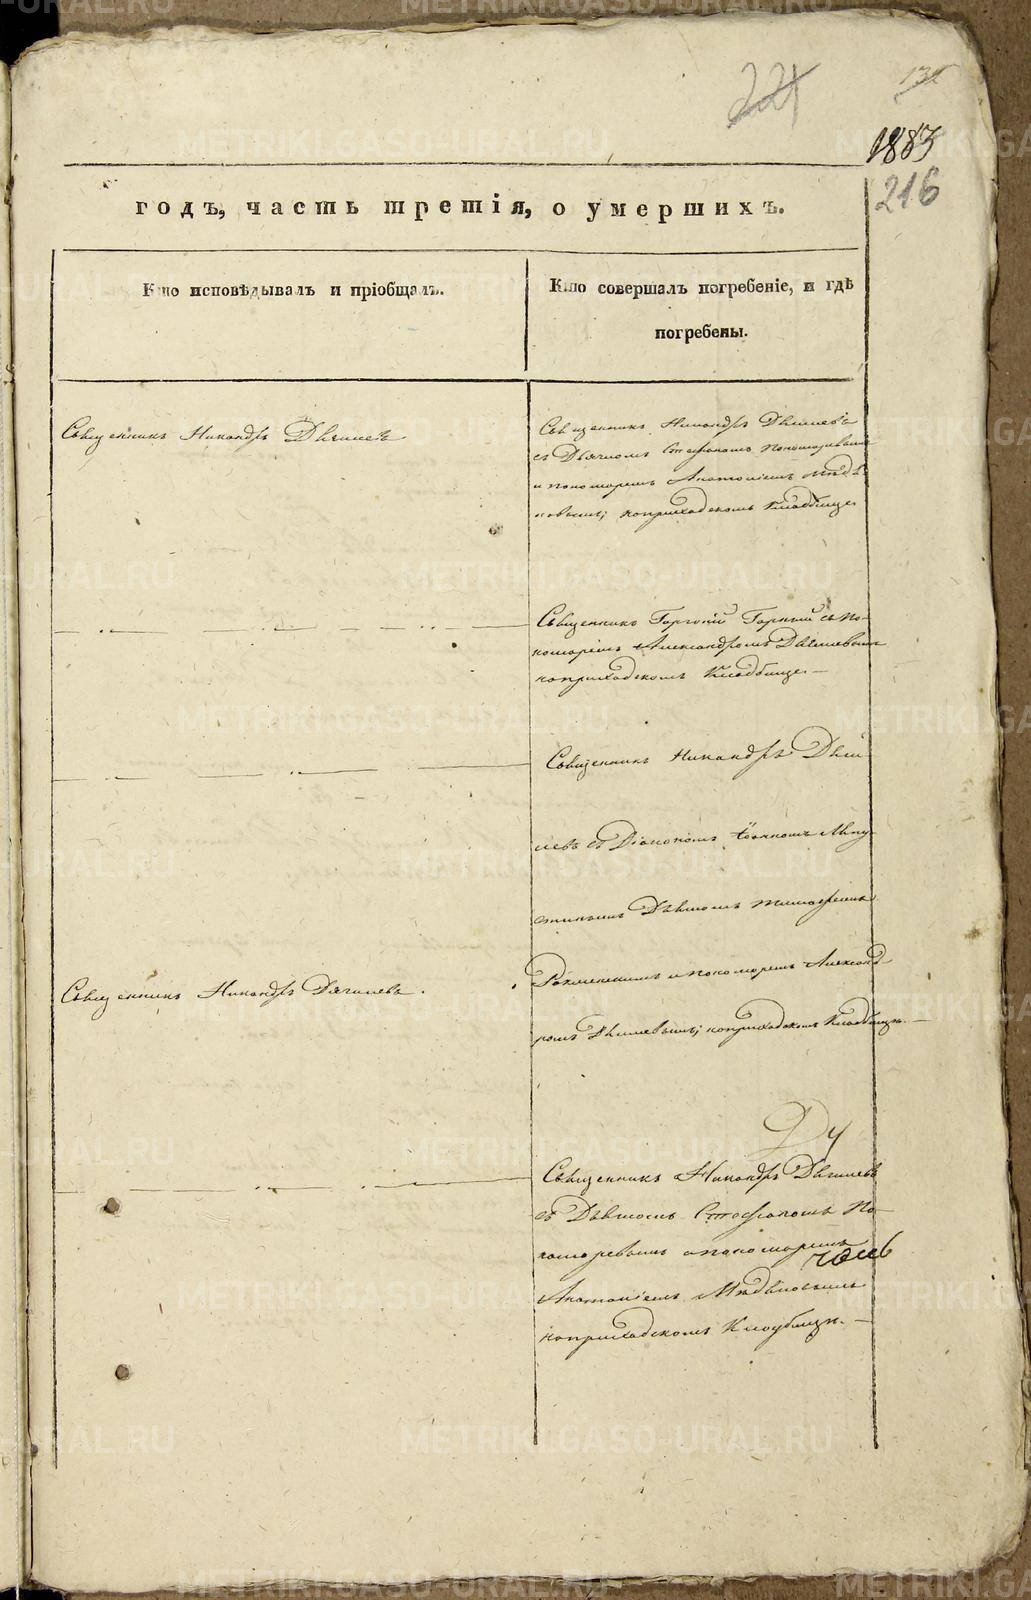 221
131
1883
216
годъ, часть третія, о умершихъ.
Кто исповѣдывалъ и пріобщалъ.
Кто совершалъ погребеніе, и гдѣ
погребены.
Священникъ Никандръ Дягилевъ
Священникъ Никандръ Дягилевъ
съ Дьячкомъ Стефаномъ Пономаревымъ
и пономаремъ Анатоліемъ
наприходскомъ Кладбище
Священникъ Горгоній Горный съ по-
номаремъ Александромъ Дягилевымъ
наприходскомъ Кладбище. —
Священникъ Никандръ Дяги
левъ съ Діакономъ Іоанномъ
Дьячкомъ
и пономаремъ Александ-
Священникъ Никандръ Дягилевъ.
ромъ Дягилевымъ; наприходскомъ Кладбищѣ. —
Ду
Священникъ Никандръ Дягилевъ
съ Дьячкомъ Стефаномъ По-
номаревымъ и пономаремъ
Анатоліемъ
наприходскомъ Кладбищѣ. —
METRIKI.GASO-URAL.RU